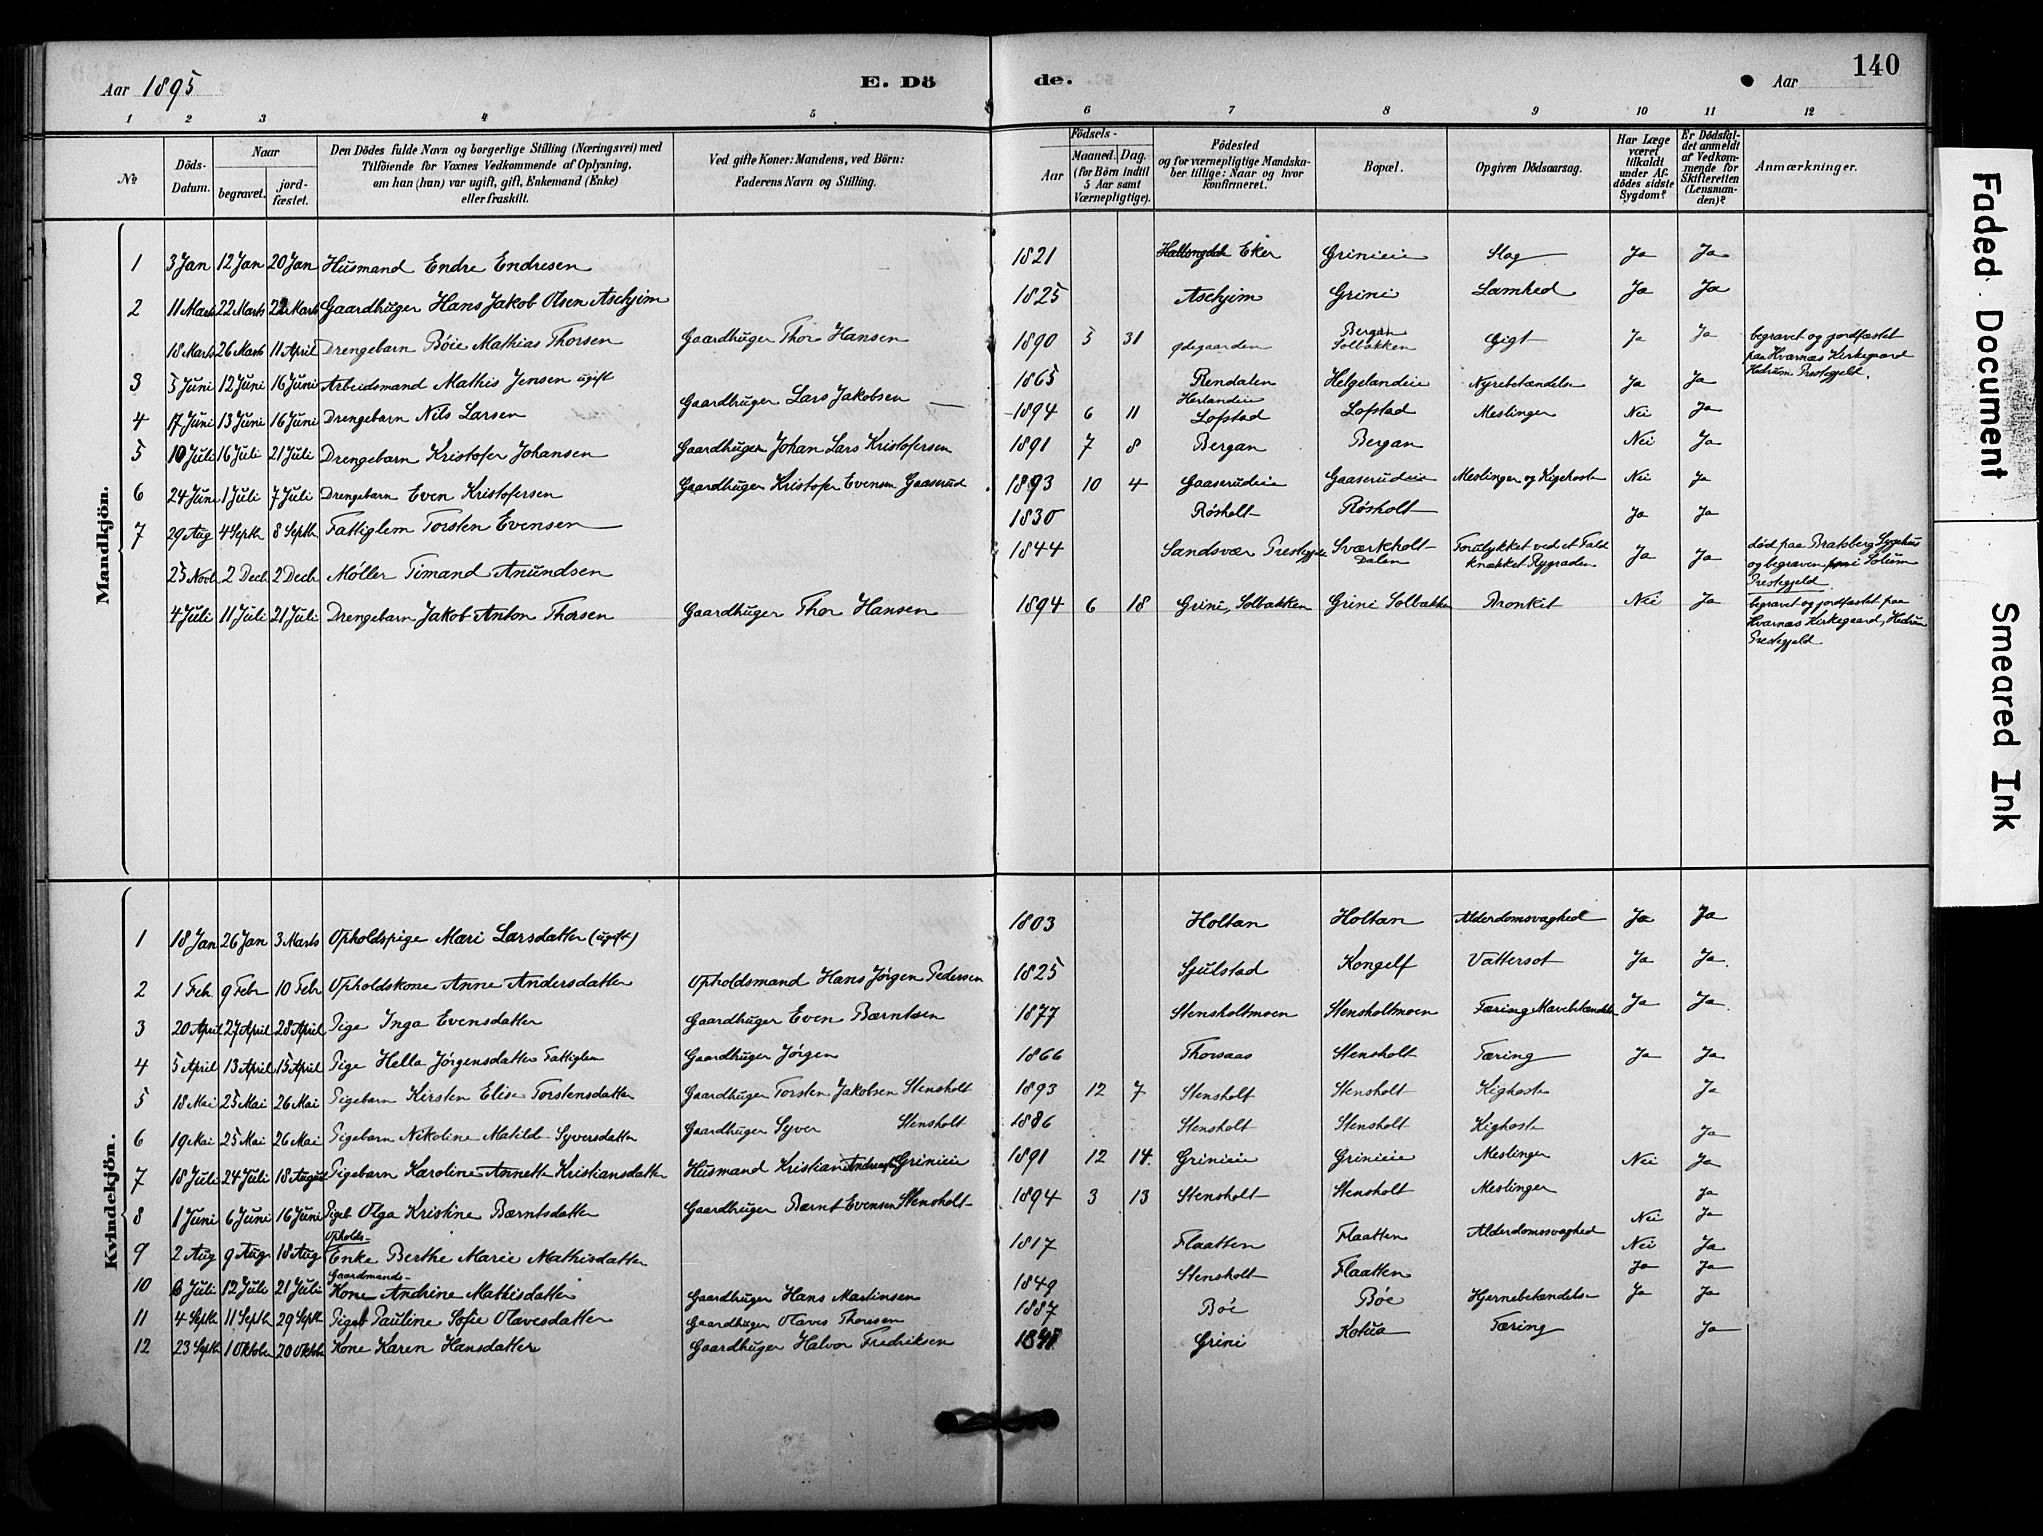 Aar 1895 E. Dö
de. Aar 140
1 2 3 4 5 6 7 8 9 10 11 12
No
Döds-Datum.
Naar
begravet.
jord-fæstet.
Den Dödes fulde Navn og borgerlige Stilling (Næringsvei) med
Tilföiende for Voxnes Vedkommende af Oplysning,
om han (hun) var ugift, gift, Enkemand (Enke)
eller fraskilt.
Ved gifte Koner: Mandens, ved Börn:
Faderens Navn og Stilling.
Födsels-
Aar
Maaned. Dag.
(for Börn indtil
5 Aar samt
Værnepligtige).
Födested
og for værnepligtige Mandska-
ber tillige: Naar og hvor
konfirmeret.
Bopæl.
Opgiven Dödsaarsag.
Har Læge
været
tilkaldt
under Af-
dödes sidste
Sygdom?
Er Dödsfal-
det anmeldt
af Vedkom-
mende for
Skifteretten
(Lensman-
den)?
Anmærkninger.
Mandkjön.
1 3 Jan 12 Jan 20 Jan Husmand Endre Endresen 1821 Eker Grinieie Slag Ja Ja
2 11 Marts 22 Marts 22 Marts Gaardbruger Hans Jakob Olsen Aschjim 1825 Aschjim Grini Lamhed Ja Ja
18 Marts 26 Marts 11 April Drengebarn Böie Mathias Thorsen Gaardbruger Thor Hansen 1890 5 31 Ødegaarden Bergan Solbakken Gigt Ja Ja begravet og jordfæstet
paa Hvarnæs Kirkegaard
Hedrum Prestegjeld.
3 5 Juni 12 Juni 16 Juni Arbeidsmand Mathis Jensen ugift 1865 Rendalen Helgelandeie Nyrebetændelse Ja Ja
4 17 Juni 13 Juni 16 Juni Drengebarn Nils Larsen Gaardbruger Lars Jakobsen 1894 6 11 Herlandeie Lofstad Lofstad Meslinger Nei Ja
5 10 Juli 16 Juli 21 Juli Drengebarn Kristofer Johansen Gaardbruger Johan Lars Kristofersen 1891 7 8 Bergan Bergan Nei Ja
6 24 Juni 1 Juli 7 Juli Drengebarn Even Kristofersen Gaardbruger Kristofer Evensen Gaaserud 1893 10 4 Gaaserudeie Gaaserudeie Meslinger og Kighoste Nei Ja
7 29 Aug 4 Septb 8 Septb Fattiglem Torsten Evensen 1830 Røsholt Røsholt Ja Ja
25 Novb 2 Decb 2 Decb Møller Timand Anundsen 1844 Sandsvær Prestegjeld Sværkholt Dalen Forulykket ved et Fald
knækket Rygraden Ja Ja død paa Bratsberg Sygehus
og begraven i Solum
Prestegjeld
4 Juli 11 Juli 21 Juli Drengebarn Jakob Anton Thorsen Gaardbruger Thor Hansen 1894 6 18 Grini, Solbakken Grini Solbakken Bronkit Nei Ja begravet og jordfæstet paa
Hvarnæs Kirkegaard, Hedrum
Prestegjeld
Kvindekjön.
1 18 Jan 26 Jan 3 Marts Opholdspige Mari Larsdatter (ugift) 1803 Holtan Holtan Alderdomsvaghed Ja Ja
2 1 Feb. 9 Febr 10 Feb Opholdskone Anne Andersdatter Opholdsmand Hans Jørgen Pedersen 1825 Sjulstad Kongelf Vattersot Ja Ja.
3 20 April 27 April 28 April Pige Inga Evensdatter Gaardbruger Even Bærntsen 1877 Stensholtmoen Stensholtmoen Tæring Mavebetændelse Ja Ja.
4 5 April 13 April 15 April Pige Hella Jørgensdatter Fattiglem Gaardbruger Jørgen 1866 Thorsaas Stensholt Tæring Ja Ja
5 18 Mai 25 Mai 26 Mai Pigebarn Kirsten Elise Torstensdatter Gaardbruger Torsten Jakobsen Stensholt 1893 12 7 Stensholt Stensholt Kighoste Ja
6 19 Mai 25 Mai 26 Mai Pigebarn Nikoline Matilde Syversdatter Gaardbruger Syver Stensholt 1886 Stensholt Stensholt Kighoste Ja
7 18 Juli 24 Juli 18 August Pigebarn Karoline Annette Kristiansdatter Husmand Kristian Andreas Grinieie 1891 12 14. Grinieie Grinieie Meslinger Nei Ja
8 1 Juni 6 Juni 16 Juni Pigeb. Olga Kristine Bærntsdatter Gaardbruger Bærnt Evensen Stensholt 1894 3 13 Stensholt Stensholt Meslinger Ja
Nei Ja
9 2 Aug 9 Aug. 18 Aug Opholds-
Enke Berthe Marie Mathisdatter 1817 Flaatten Flaatten Alderdomssvaghed Nei Ja
10 6 Juli 12 Juli 21 Juli Gaardmands-
Kone Andrine Mathisdatter Gaardbruger Hans Martinsen 1849 Stensholt Flaatten Ja Ja
11 4 Septb 11 Septb 29 Septb Pigeb Pauline Sofie Olavesdatter Gaardbruger Olaves Thoresen 1887 Bøe Bøe Hjernebetændelse Ja Ja
12 23 Septb 1 Oktober 20 Oktober Kone Karen Hansdatter Gaardbruger Halvor Fredriksen Grini Kolua Tæring Ja
Faded Document
Smeared Ink